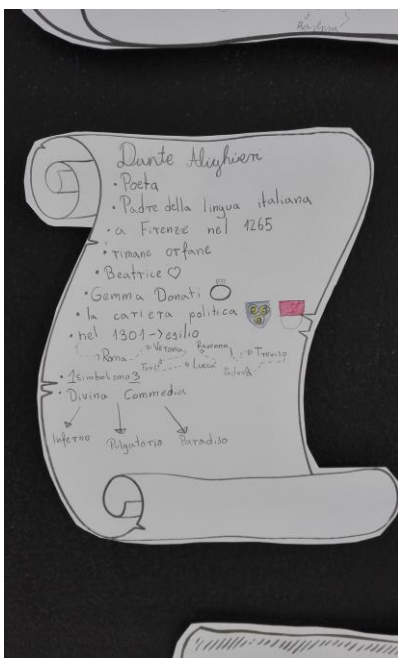 Ravenna
Dante Alighieri
• Poeta
• Padre della lingua italiana
• a Firenzie nel 1265
• rimane orfane
• Beatrice ♡
• Gemma Donati
• la cariera politica
• nel 1301 -> esilio
Roma Verona Ravenna Treviso
Forlì Lucca Padova
• 1 simbolismo 3
• Divina Commedia
Inferno Pulgatorio Paradiso